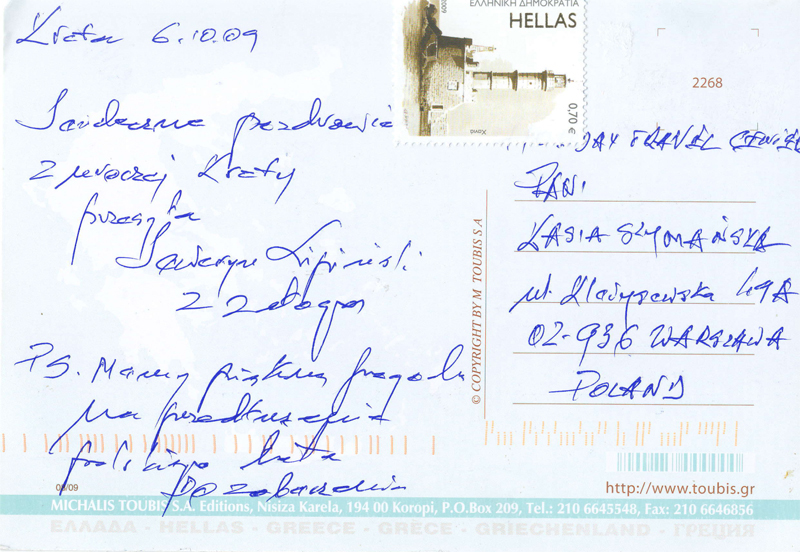 Kreta 6.10.09
Serdeczne pozdrowienia
z uroczej Krety
przesyła
Seweryn Lipiński
z załogą
PS. Mamy piękną pogodę
na przedłużenie
polskiego lata
Do zobaczenia
ΕΛΛΗΝΙΚΗ ΔΗΜΟΚΡΑΤΙΑ
HELLAS
2009
Χανιά
0,70 €
2268
TRAVEL
PANI
KASIA SZYMAŃSKA
ul. 49A
02-936 WARSZAWA
POLAND
© COPYRIGHT BY M. TOUBIS S.A
http://www.toubis.gr
/09
MICHALIS TOUBIS S.A. Editions, Nisiza Karela, 194 00 Koropi, P.O.Box 209, Tel.: 210 6645548, Fax: 210 6646856
ΕΛΛΑΔΑ - HELLAS - GREECE - GRÈCE - GRIECHENLAND - ГРЕЦИЯ